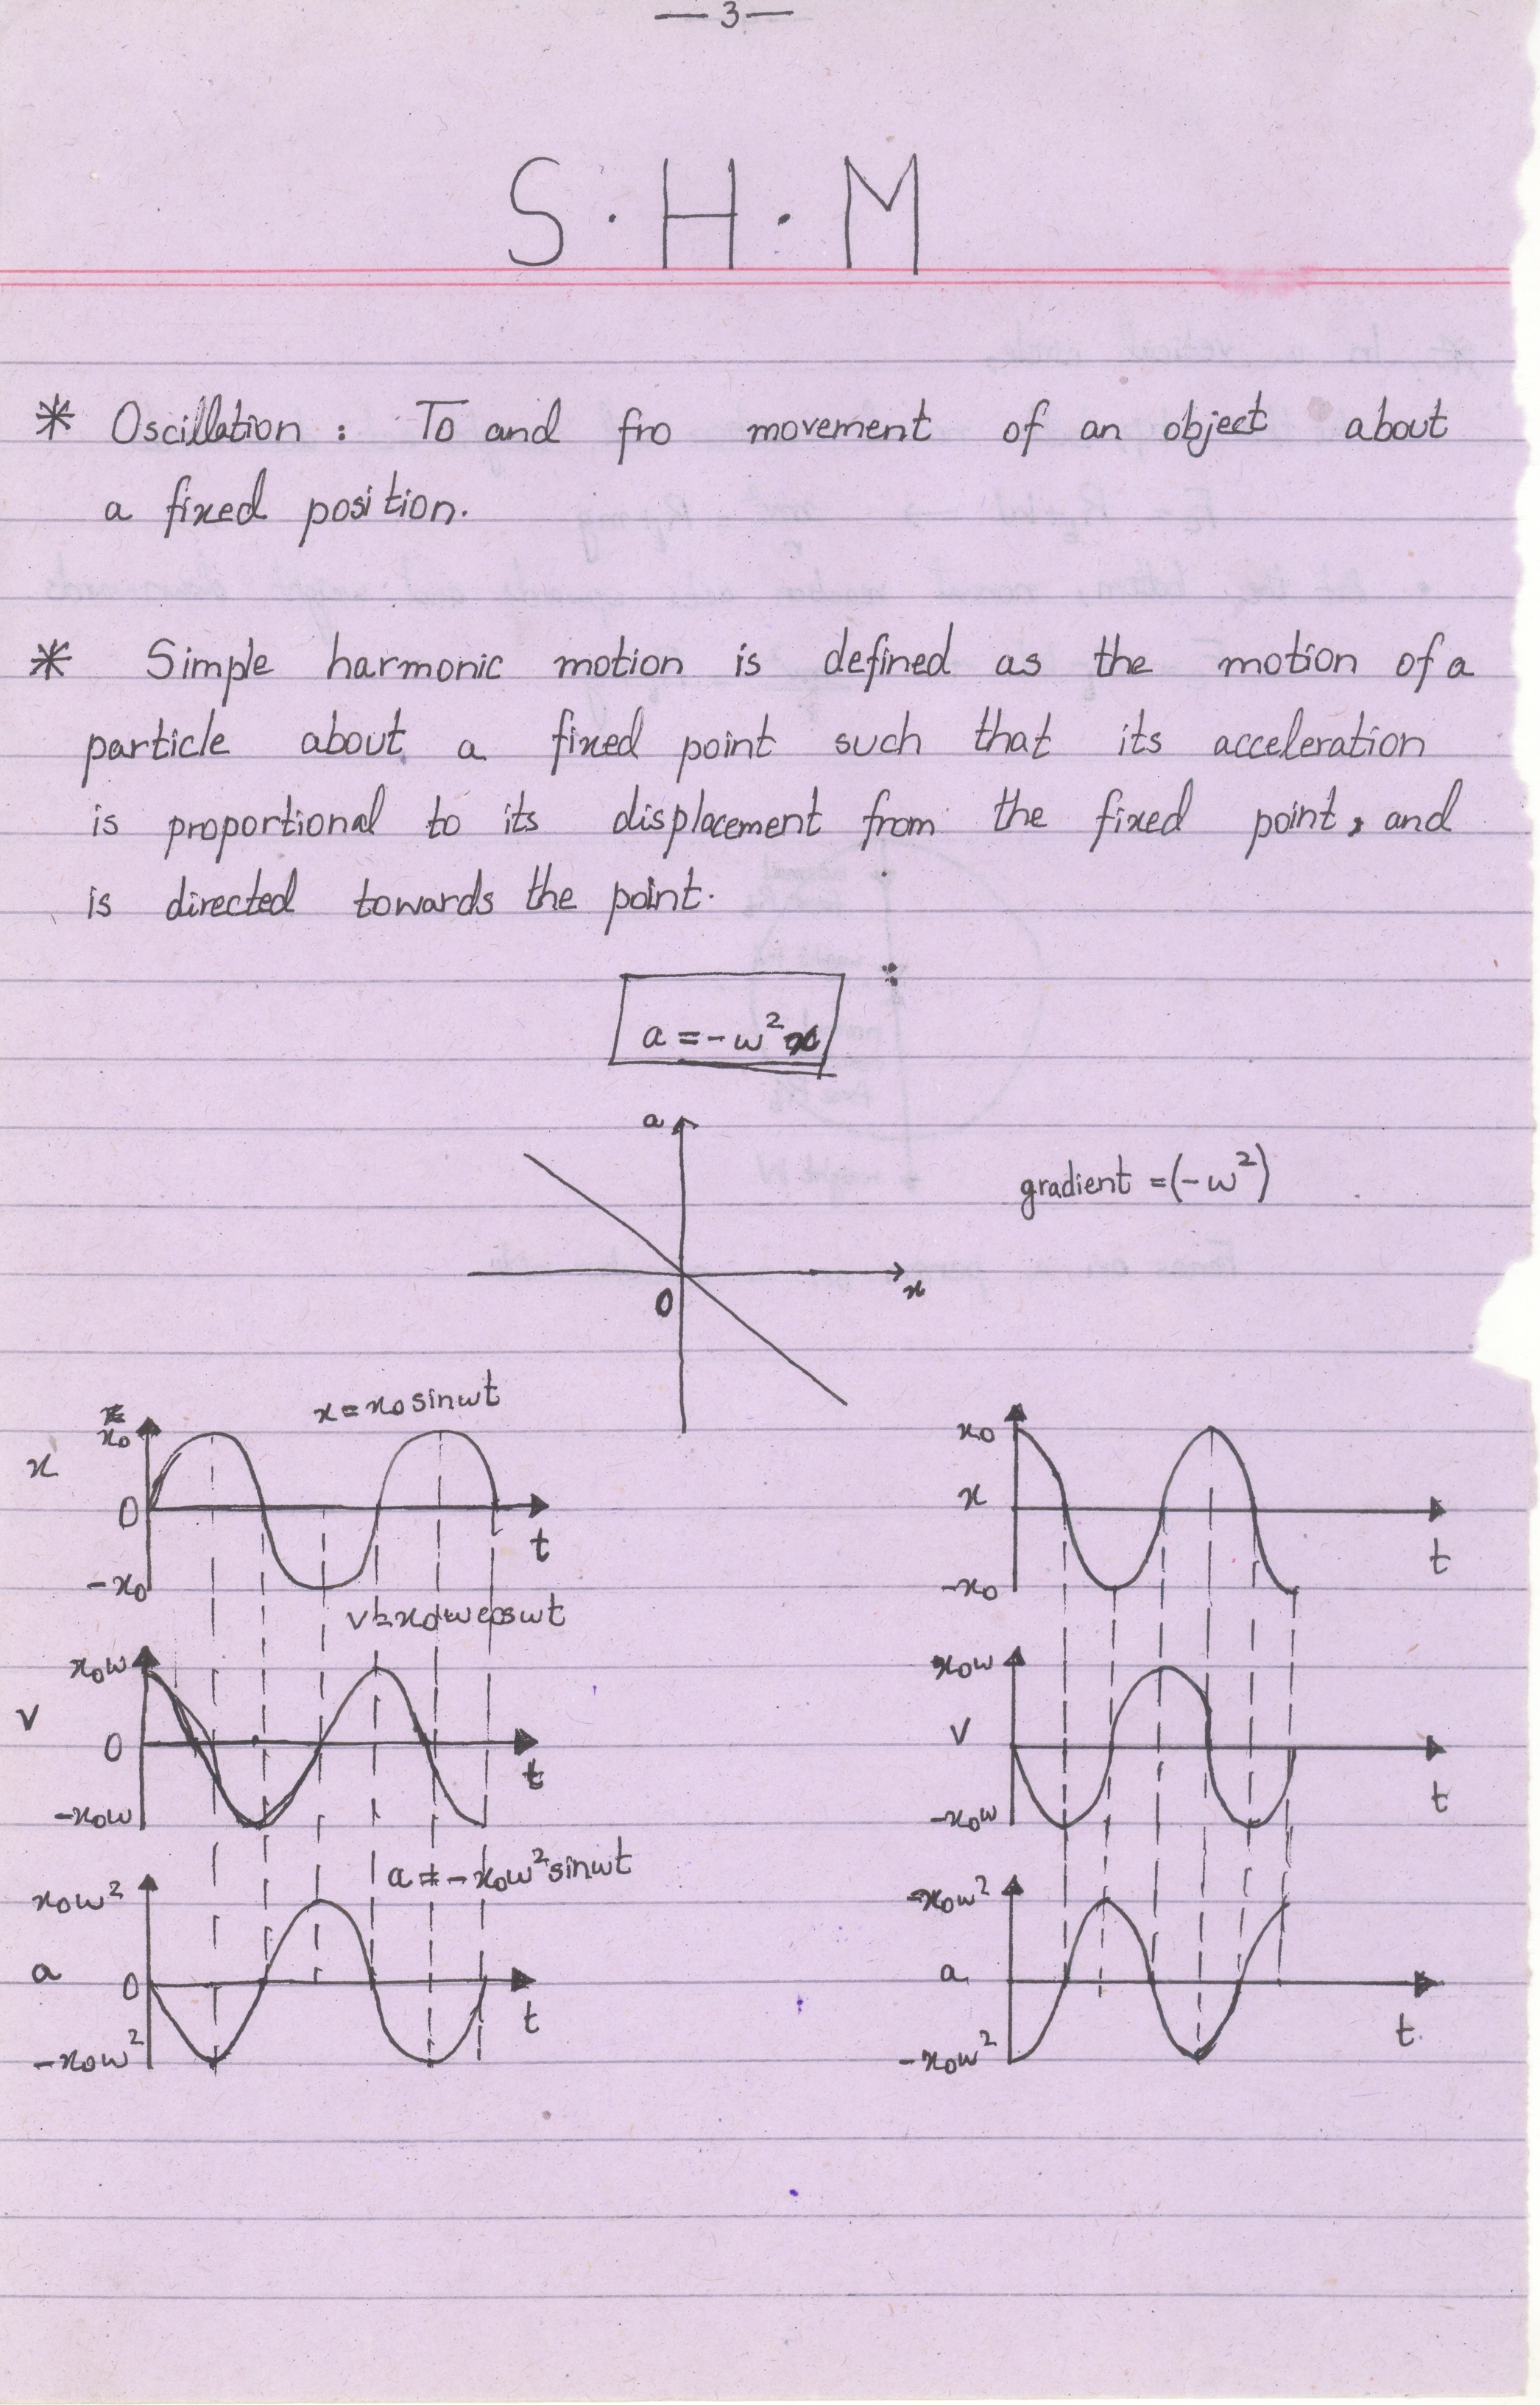 — 3 —
S . H . M
* Oscillation : To and fro movement of an object about
a fixed position.
* Simple harmonic motion is defined as the motion of a
particle about a fixed point such that its acceleration
is proportional to its displacement from the fixed point, and
is directed towards the point.
a = -ω²x
a
gradient = (-ω²)
0
x
x = x₀ sinωt
x₀
x
0
t
-x₀
x₀
x
t
-x₀
v = x₀ω cosωt
x₀ω
v
0
t
-x₀ω
x₀ω
v
t
-x₀ω
a = -x₀ω² sinωt
x₀ω²
a
0
t
-x₀ω²
x₀ω²
a
t
-x₀ω²